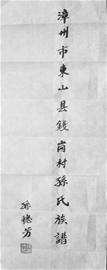 漳州市東山县钱岗村孫氏族譜
孫穂芳